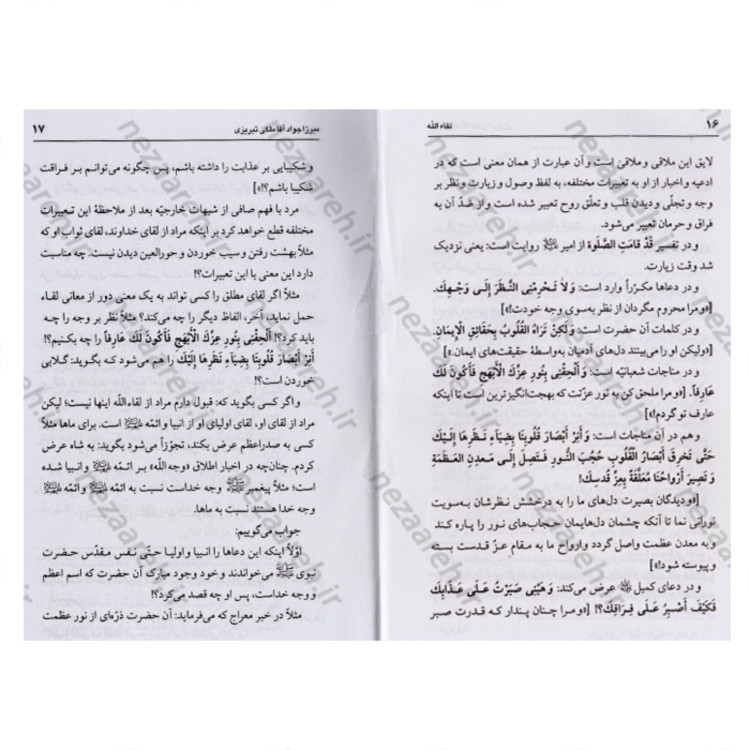 ۱۶ لقاء الله
لایق این ملاقی وملاقیٰ است وآن عبارت از همان معنی است که در
ادعیه و اخبار از او به تعبیرات مختلفه، به لفظ وصول و زیارت و نظر بر
وجه و تجلّی و دیدن قلب و تعلّق روح تعبیر شده است و از ضدّ آن به
فراق و حرمان تعبیر می‌شود.
و در تفسیر قَدْ قامَتِ الصَّلوة از امیر روایت است: یعنی نزدیک
شد وقت زیارت.
و در دعاها مکرّراً وارد است: وَلاٰ تَحْرِمْنِی النَّظَرَ إِلٰی وَجْهِكَ.
[«ومرا محروم مگردان از نظر به‌سوی وجه خودت!»]
و در کلمات آن حضرت است: وَلٰکِنْ تَرَاهُ الْقُلُوبُ بِحَقَائِقِ الْإِیمَانِ.
[«ولیکن او را می‌بینند دل‌های آدمیان به‌واسطهٔ حقیقت‌های ایمان.»]
و در مناجات شعبانیّه است: وَأَلْحِقْنِی بِنُورِ عِزِّكَ الْأَبْهَجِ فَأَكُونَ لَكَ
عَارِفاً. [«و مرا ملحق کن به نور عزّتت که بهجت‌انگیزترین است تا اینکه
عارف تو گردم!»]
و هم در آن مناجات است: وَ أَنِرْ أَبْصَارَ قُلُوبِنَا بِضِیَاءِ نَظَرِهَا إِلَیْكَ
حَتَّی تَخْرِقَ أَبْصَارُ الْقُلُوبِ حُجُبَ النُّورِ فَتَصِلَ إِلَی مَعْدِنِ الْعَظَمَةِ
وَ تَصِیرَ أَرْوَاحُنَا مُعَلَّقَةً بِعِزِّ قُدْسِكَ!
[«ودیدگان بصیرت دل‌های ما را به درخشش نظرشان به‌سویت
نورانی نما تا آنکه چشمان دل‌هایمان حجاب‌های نور را پاره کند
و به معدن عظمت واصل گردد وارواح ما به مقام عزّ قدست بسته
و پیوسته شود!»]
و در دعای کمیل عرض می‌کند: وَهَبْنِی صَبَرْتُ عَلَی عَذَابِكَ
فَکَیْفَ أَصْبِرُ عَلَی فِرَاقِكَ؟! [«و مرا چنان پندار که قدرت صبر
میرزا جواد آقا ملکی تبریزی ۱۷
و شکیبایی بر عذابت را داشته باشم، پس چگونه می‌توانم بر فراقت
شکیبا باشم؟!»]
مرد با فهم صافی از شبهات خارجیّه بعد از ملاحظهٔ این تعبیرات
مختلفه قطع خواهد کرد بر اینکه مراد از لقای خداوند، لقای ثواب او که
مثلاً بهشت رفتن و سیب خوردن و حورالعین دیدن نیست. چه مناسبت
دارد این معنی با این تعبیرات؟!
مثلاً اگر لقای مطلق را کسی تواند به یک معنی دور از معانی لقاء
حمل نماید، آخر، الفاظ دیگر را چه می‌کند؟! مثلاً نظر بر وجه را چه
باید کرد؟! أَلْحِقْنِی بِنُورِ عِزِّكَ الْأَبْهَجِ فَأَكُونَ لَكَ عَارِفاً را چه بکنیم؟!
أَنِرْ أَبْصَارَ قُلُوبِنَا بِضِیَاءِ نَظَرِهَا إِلَیْكَ را هم می‌شود که بگوید: گلابی
خوردن است؟!
و اگر کسی بگوید که: قبول دارم مراد از لقاءالله اینها نیست؛ لیکن
مراد از لقای او، لقای اولیای او از انبیا و ائمّه است. برای ماها مثلاً
کسی به صدراعظم عرض بکند، تجوّزاً می‌شود بگوید: به شاه عرض
کردم. چنان‌چه در اخبار اطلاق «وجه الله» بر ائمّه وانبیا شده
است؛ مثلاً پیغمبر وجه خداست نسبت به ائمّه وائمّه
وجه خدا هستند نسبت به ماها.
جواب می‌گوییم:
اوّلاً اینکه این دعاها را انبیا و اولیا حتّی نفس مقدّس حضرت
نبوی می‌خواندند و خود وجود مبارک آن حضرت که اسم اعظم
و وجه خداست، پس او چه قصد می‌کرد؟!
مثلاً در خبر معراج که می‌فرماید: آن حضرت ذرّه‌ای از نور عظمت
nezaareh.ir